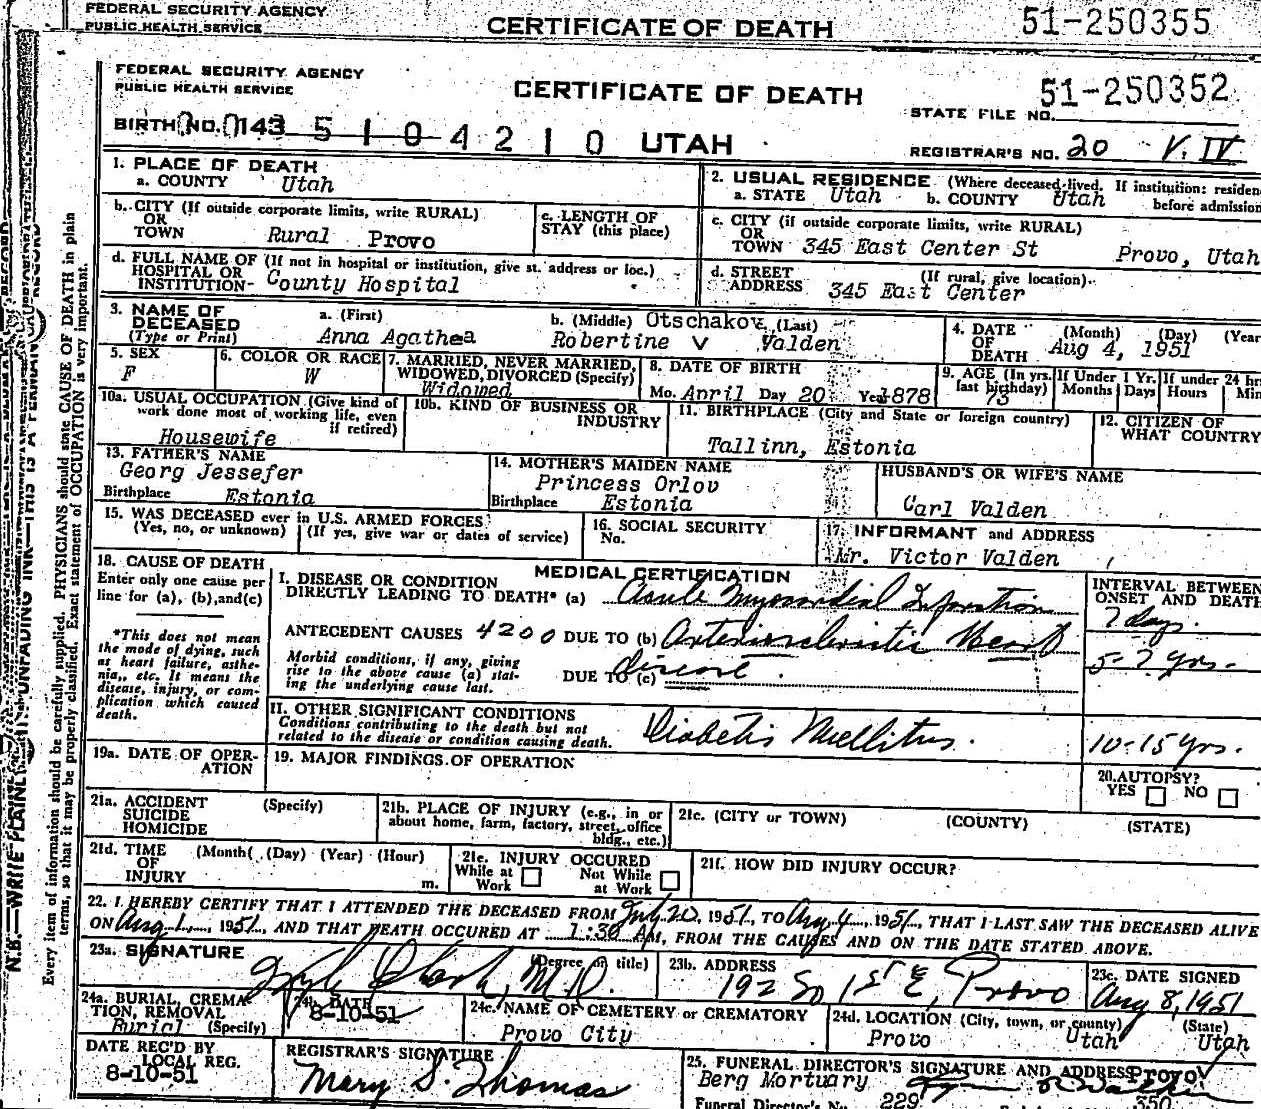 FEDERAL SECURITY AGENCY
PUBLIC HEALTH SERVICE
CERTIFICATE OF DEATH
51-250355
FEDERAL SECURITY AGENCY
PUBLIC HEALTH SERVICE
CERTIFICATE OF DEATH
51-250352
STATE FILE NO.
BIRTH NO. 143 5 1 0 4 2 1 0 UTAH
REGISTRAR'S NO. 20 V. IV
1. PLACE OF DEATH
a. COUNTY Utah
2. USUAL RESIDENCE (Where deceased lived. If institution: residen
before admission
a. STATE Utah b. COUNTY Utah
b. CITY (If outside corporate limits, write RURAL)
OR
TOWN Rural Provo
c. LENGTH OF
STAY (this place)
c. CITY (if outside corporate limits, write RURAL)
OR
TOWN 345 East Center St Provo, Utah
d. FULL NAME OF (If not in hospital or institution, give st. address or loc.)
HOSPITAL OR
INSTITUTION- County Hospital
d. STREET (If rural, give location)
ADDRESS 345 East Center
3. NAME OF
DECEASED
(Type or Print)
a. (First)
Anna Agathea
b. (Middle) Otschakov (Last)
Robertine v Valden
4. DATE (Month) (Day) (Year
OF
DEATH Aug 4, 1951
5. SEX
F
6. COLOR OR RACE
W
7. MARRIED, NEVER MARRIED,
WIDOWED, DIVORCED (Specify)
Widowed
8. DATE OF BIRTH
Mo. April Day 20 Year 1878
9. AGE (In yrs.
last birthday)
73
If Under 1 Yr.
Months Days
If under 24 hr
Hours Min
10a. USUAL OCCUPATION (Give kind of
work done most of working life, even
if retired)
Housewife
10b. KIND OF BUSINESS OR
INDUSTRY
11. BIRTHPLACE (City and State or foreign country)
Tallinn, Estonia
12. CITIZEN OF
WHAT COUNTRY
13. FATHER'S NAME
Georg Jessefer
Birthplace Estonia
14. MOTHER'S MAIDEN NAME
Princess Orlov
Birthplace Estonia
HUSBAND'S OR WIFE'S NAME
Carl Valden
15. WAS DECEASED ever in U.S. ARMED FORCES?
(Yes, no, or unknown) (If yes, give war or dates of service)
16. SOCIAL SECURITY
No.
17. INFORMANT and ADDRESS
Mr. Victor Valden
18. CAUSE OF DEATH
Enter only one cause per
line for (a), (b), and (c)
*This does not mean
the mode of dying, such
as heart failure, asthe-
nia, etc. It means the
disease, injury, or com-
plication which caused
death.
MEDICAL CERTIFICATION
I. DISEASE OR CONDITION
DIRECTLY LEADING TO DEATH* (a) Acute Myocardial Infarction
INTERVAL BETWEEN
ONSET AND DEATH
7 days.
ANTECEDENT CAUSES 4200 DUE TO (b) Arteriosclerotic Heart
5-7 yrs.
Morbid conditions, if any, giving
rise to the above cause (a) stat-
ing the underlying cause last.
DUE TO (c) disease.
II. OTHER SIGNIFICANT CONDITIONS
Conditions contributing to the death but not
related to the disease or condition causing death.
Diabetis Mellitus.
10-15 yrs.
19a. DATE OF OPER-
ATION
19. MAJOR FINDINGS OF OPERATION
20. AUTOPSY?
YES NO
21a. ACCIDENT (Specify)
SUICIDE
HOMICIDE
21b. PLACE OF INJURY (e.g., in or
about home, farm, factory, street, office
bldg., etc.)
21c. (CITY or TOWN) (COUNTY) (STATE)
21d. TIME (Month) (Day) (Year) (Hour)
OF
INJURY m.
21e. INJURY OCCURED
While at Not While
Work at Work
21f. HOW DID INJURY OCCUR?
22. I HEREBY CERTIFY THAT I ATTENDED THE DECEASED FROM July 20, 1951, TO Aug 4, 1951, THAT I LAST SAW THE DECEASED ALIVE
ON Aug 1, 1951, AND THAT DEATH OCCURED AT 1:30 AM, FROM THE CAUSES AND ON THE DATE STATED ABOVE.
23a. SIGNATURE (Degree or title)
M.D.
23b. ADDRESS
192 So 1st E, Provo
23c. DATE SIGNED
Aug 8, 1951
24a. BURIAL, CREMA-
TION, REMOVAL
Burial (Specify)
24b. DATE
8-10-51
24c. NAME OF CEMETERY or CREMATORY
Provo City
24d. LOCATION (City, town, or county) (State)
Provo Utah Utah
DATE REC'D BY
LOCAL REG.
8-10-51
REGISTRAR'S SIGNATURE
Mary S. Thomas
25. FUNERAL DIRECTOR'S SIGNATURE AND ADDRESS Provo
Berg Mortuary
Funeral Director's No. 229 350
N.B.—WRITE PLAINLY UNFADING INK—THIS IS A PERMANENT RECORD
Every item of information should be carefully supplied. PHYSICIANS should state CAUSE OF DEATH in plain
terms, so that it may be properly classified. Exact statement of OCCUPATION is very important.